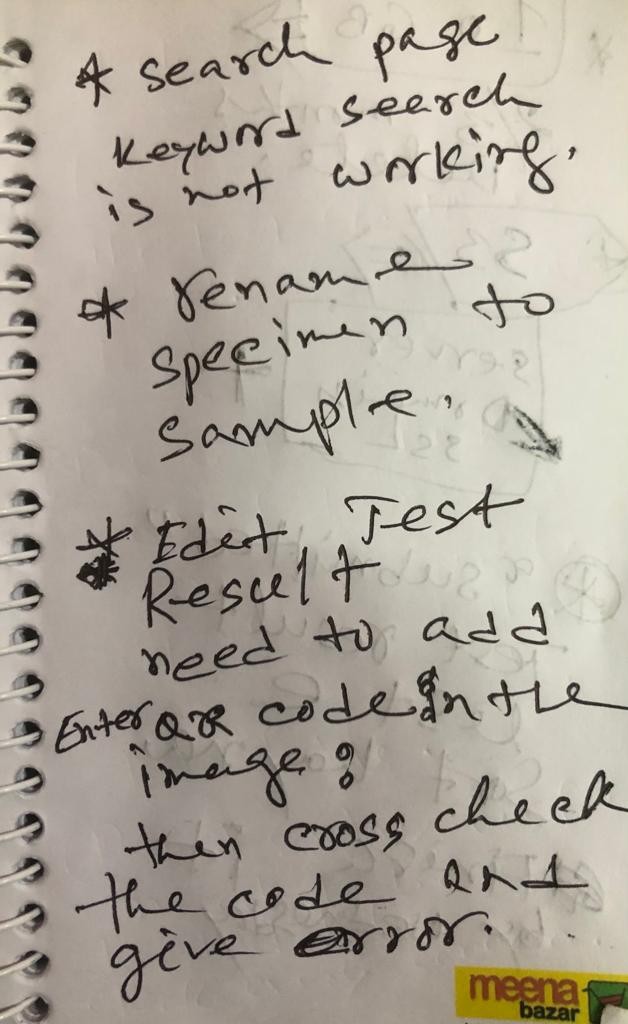 * search page
keyword search
is not working.
* rename
specimen to
sample.
* Edit Test
Result
need to add
Enter QR code in the
image?
then cross check
the code and
give error.
meena
bazar